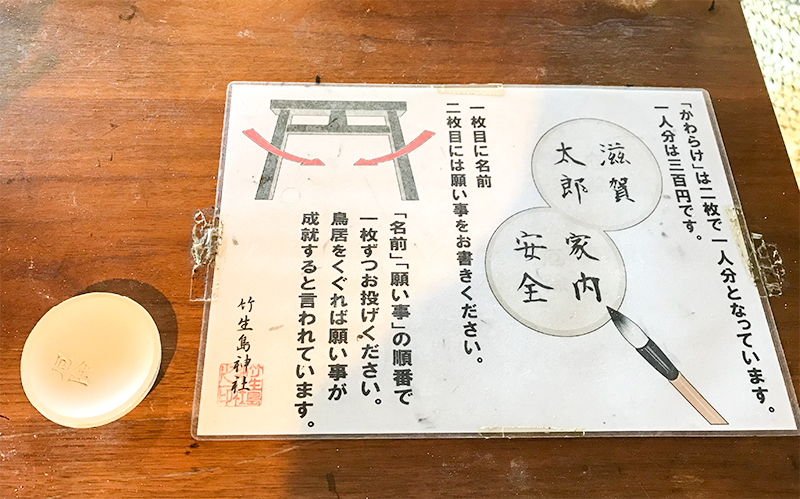 「かわらけ」は二枚で一人分となっています。
一人分は三百円です。
滋賀
太郎
家内
安全
一枚目に名前
二枚目には願い事をお書きください。
「名前」「願い事」の順番で
一枚ずつお投げください。
鳥居をくぐれば願い事が
成就すると言われています。
竹生島神社